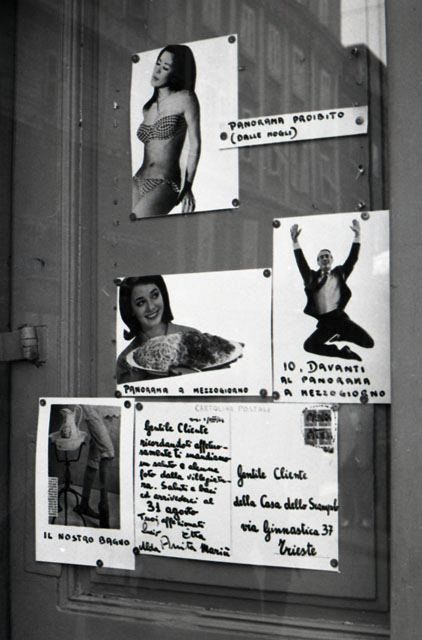 PANORAMA PROIBITO
(DALLE MOGLI)
IO, DAVANTI
AL PANORAMA
A MEZZOGIORNO
PANORAMA A MEZZOGIORNO
IL NOSTRO BAGNO
CARTOLINA POSTALE
Gentile Cliente
ricordandoti affettuo-
samente ti mandiamo
un saluto e alcune
foto dalla villeggiatu-
ra. Saluti e baci
ed arrivederci al
31 agosto
Tuoi affezionati
Etta
Alda Anita Maria
Gentile Cliente
della Casa dello Scampolo
via Ginnastica 37
Trieste